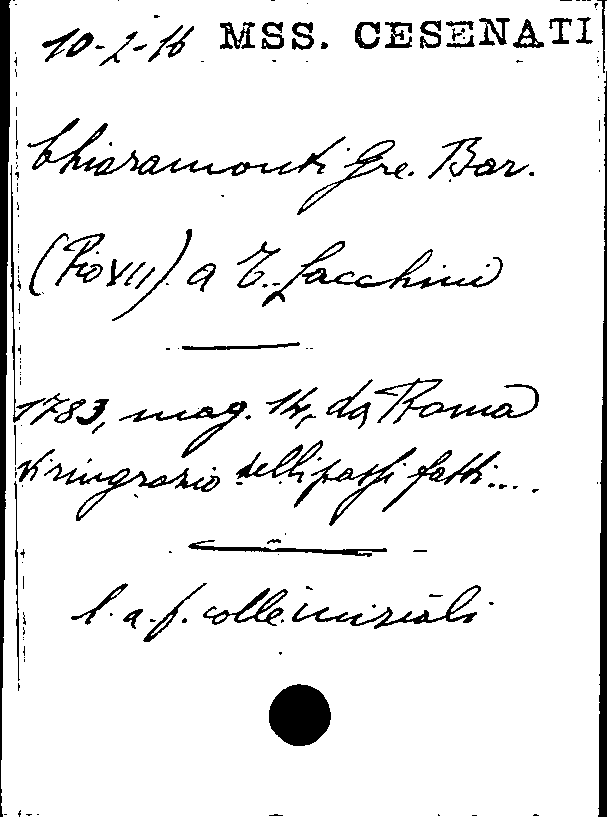 10-2-16 MSS. CESENATI
Chiaramonti Gre. Bar.
(Pio VII) a T. Sacchini
1783, mag. 14, da Roma
Vi ringrazio delli passi fatti....
l. a. f. colle iniziali